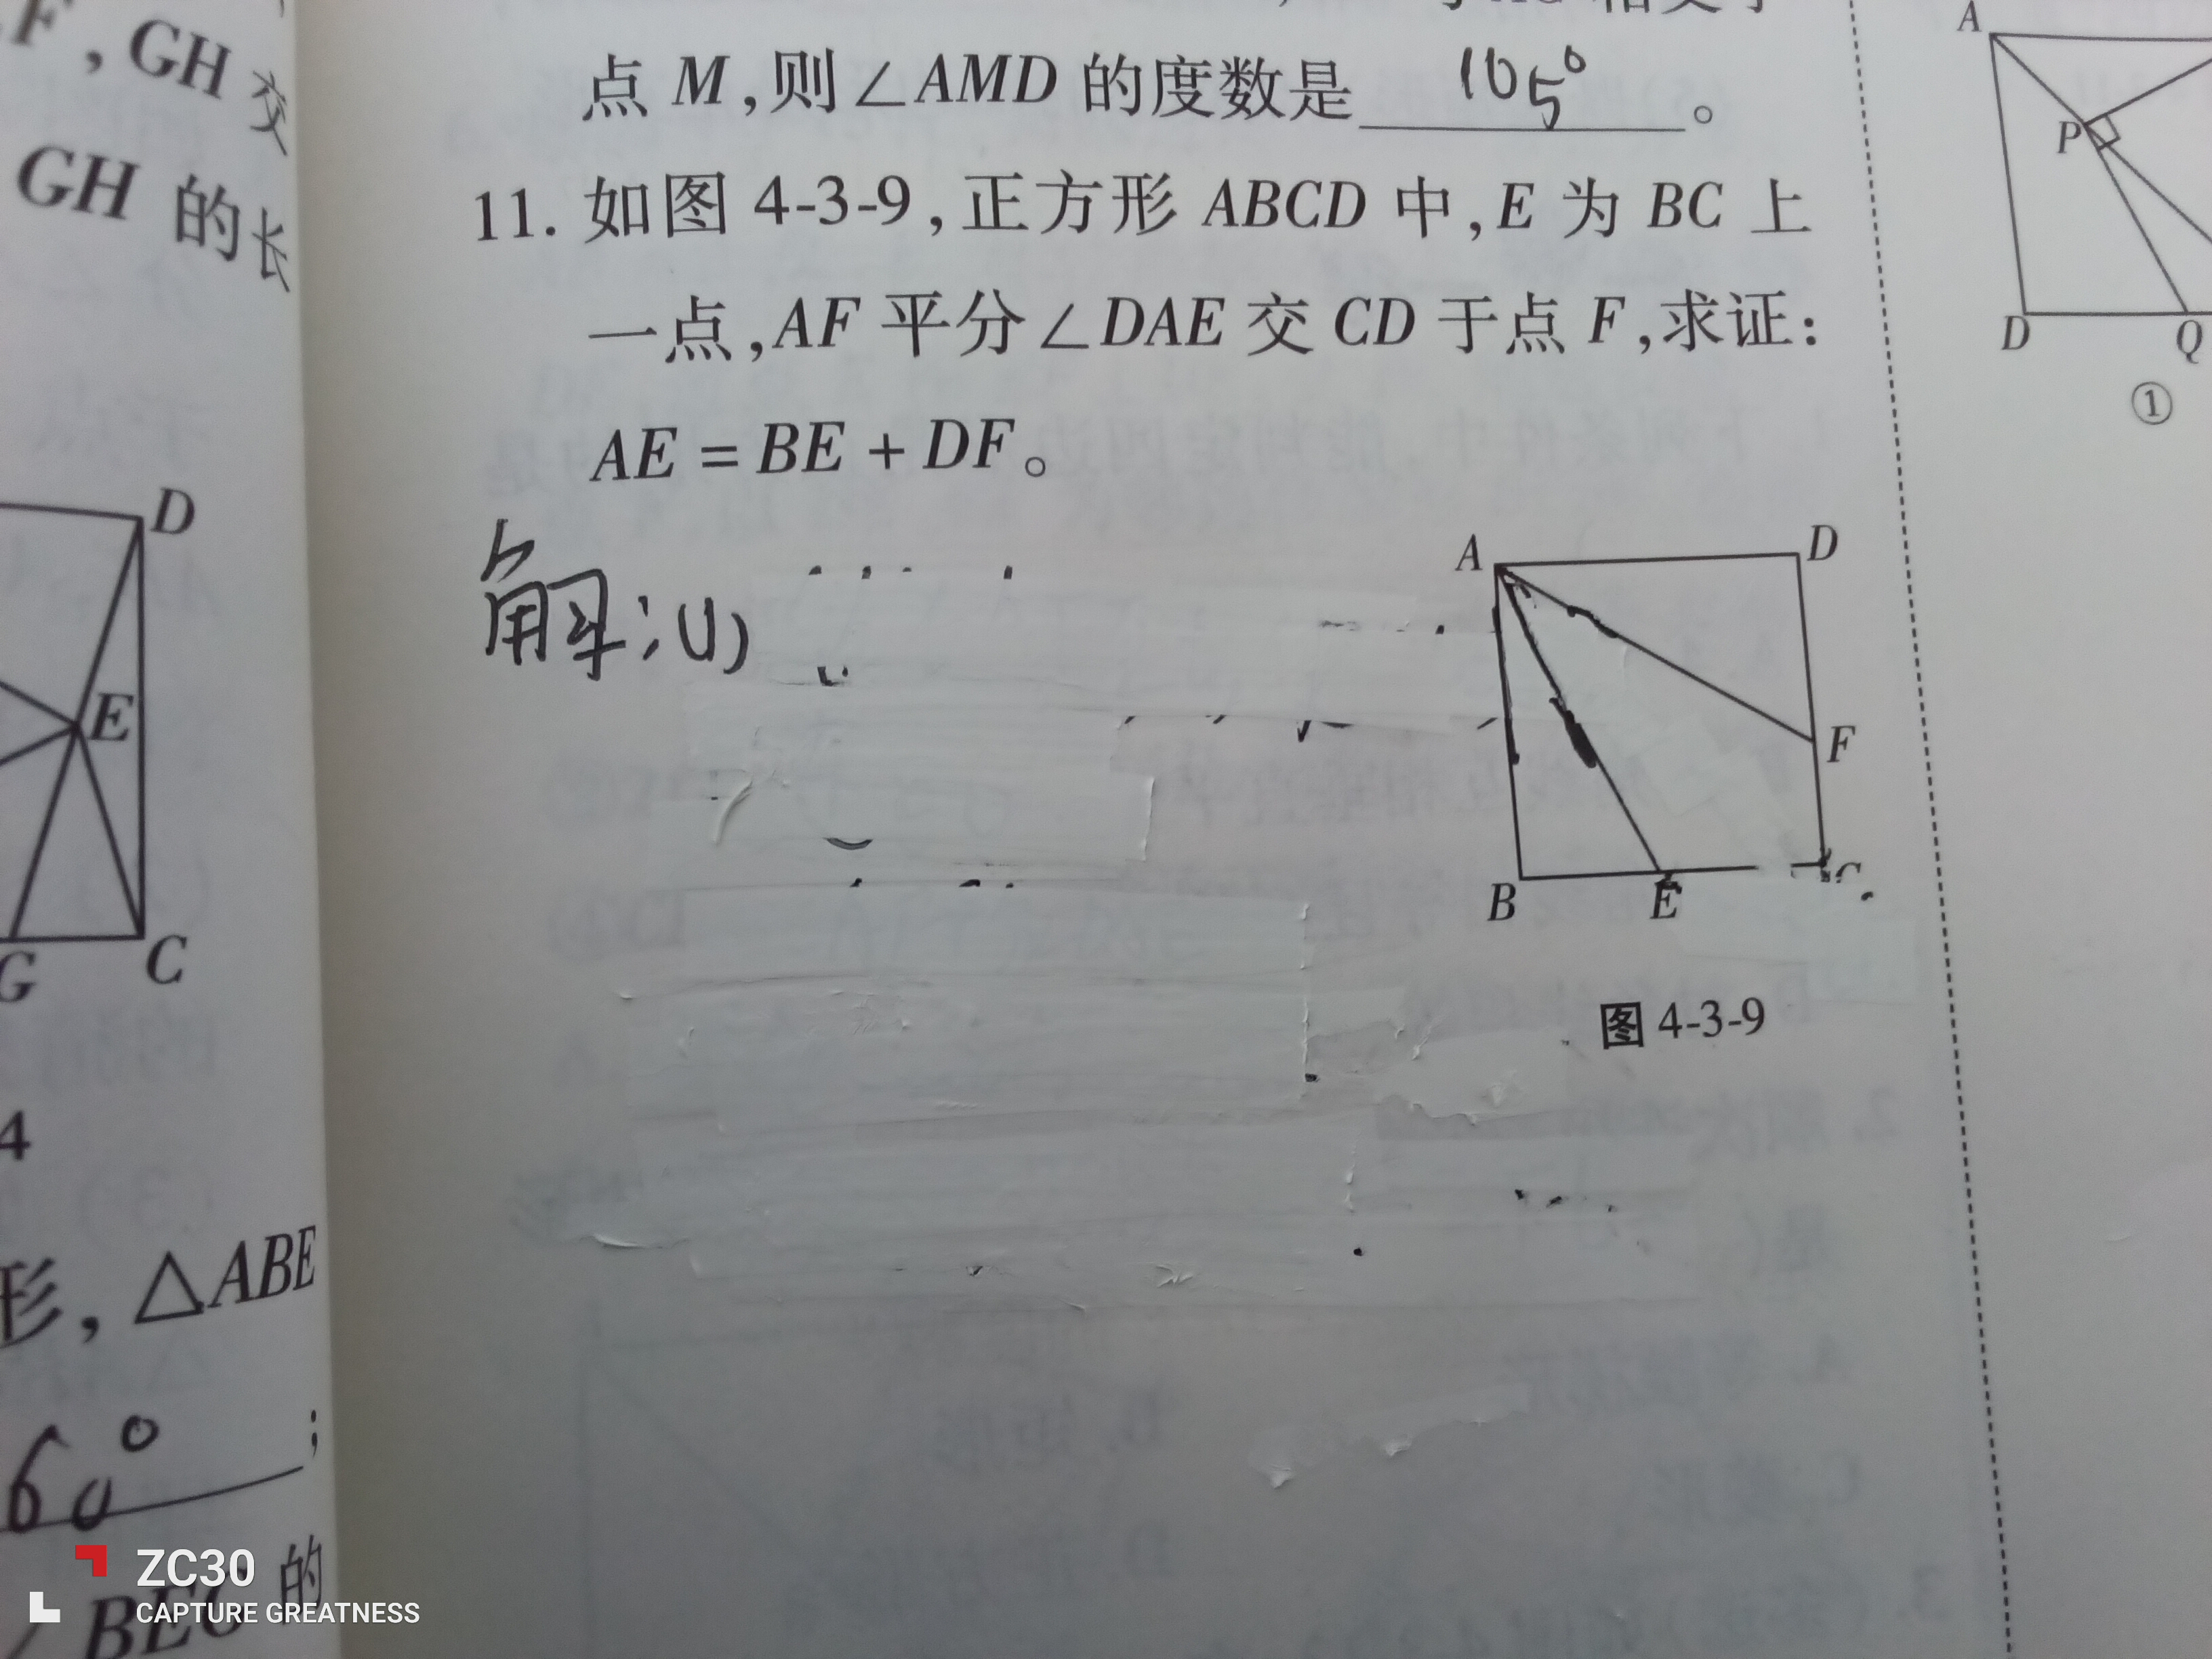 F，GH 交
GH 的长
D
E
G
C
4
形，△ABE
60°；
∠BEC 的
点 M，则∠AMD 的度数是 105° 。
11. 如图 4-3-9，正方形 ABCD 中，E 为 BC 上
一点，AF 平分∠DAE 交 CD 于点 F，求证：
AE = BE + DF。
解：(1)
A
D
F
B
E
C
图 4-3-9
A
P
D
Q
①
ZC30
CAPTURE GREATNESS